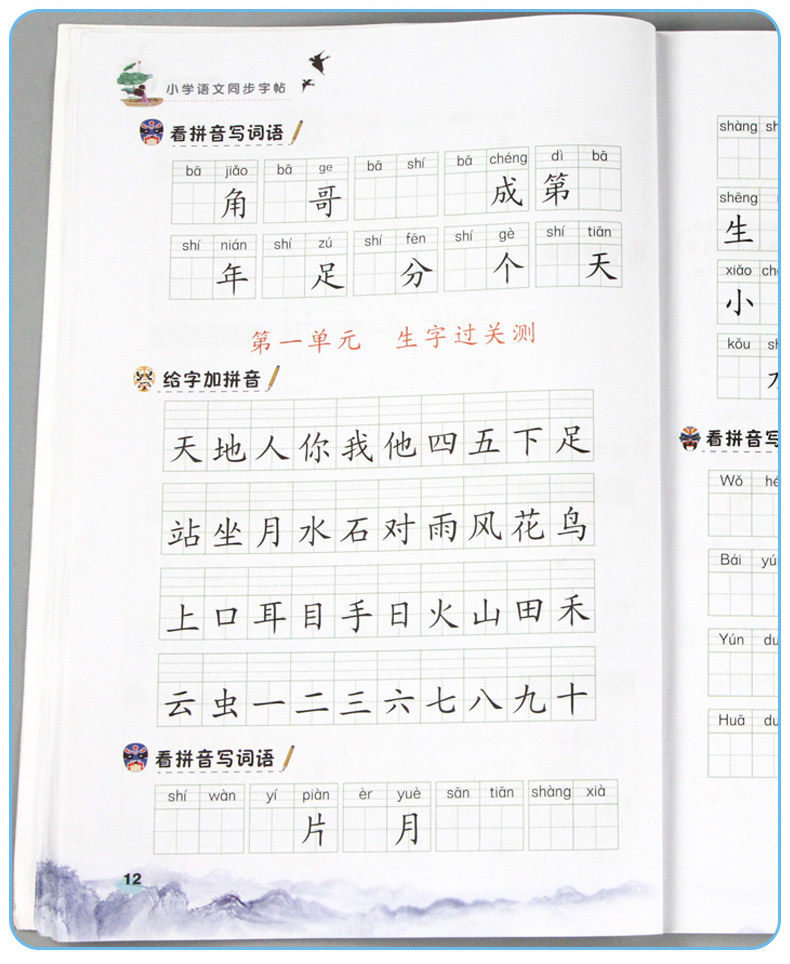 小学语文同步字帖
看拼音写词语
bā jiǎo bā ge bā shí bā chéng dì bā
角 哥 成 第
shí nián shí zú shí fēn shí gè shí tiān
年 足 分 个 天
第一单元 生字过关测
给字加拼音
天 地 人 你 我 他 四 五 下 足
站 坐 月 水 石 对 雨 风 花 鸟
上 口 耳 目 手 日 火 山 田 禾
云 虫 一 二 三 六 七 八 九 十
看拼音写词语
shí wàn yí piàn èr yuè sān tiān shàng xià
片 月
12
shàng
shēng
生
xiǎo
小
kǒu
看拼音写
Wǒ
Bái
Yún
Huā